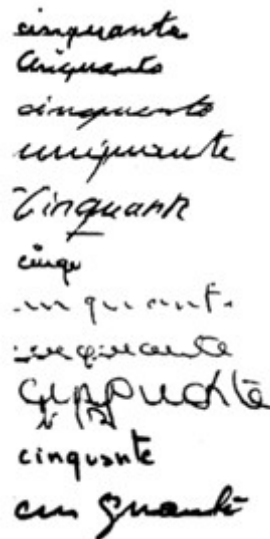 cinquante
Cinquante
cinquante
cinquante
Cinquante
cinqu
inquant
cinquante
cinquante
cinquante
cin quante